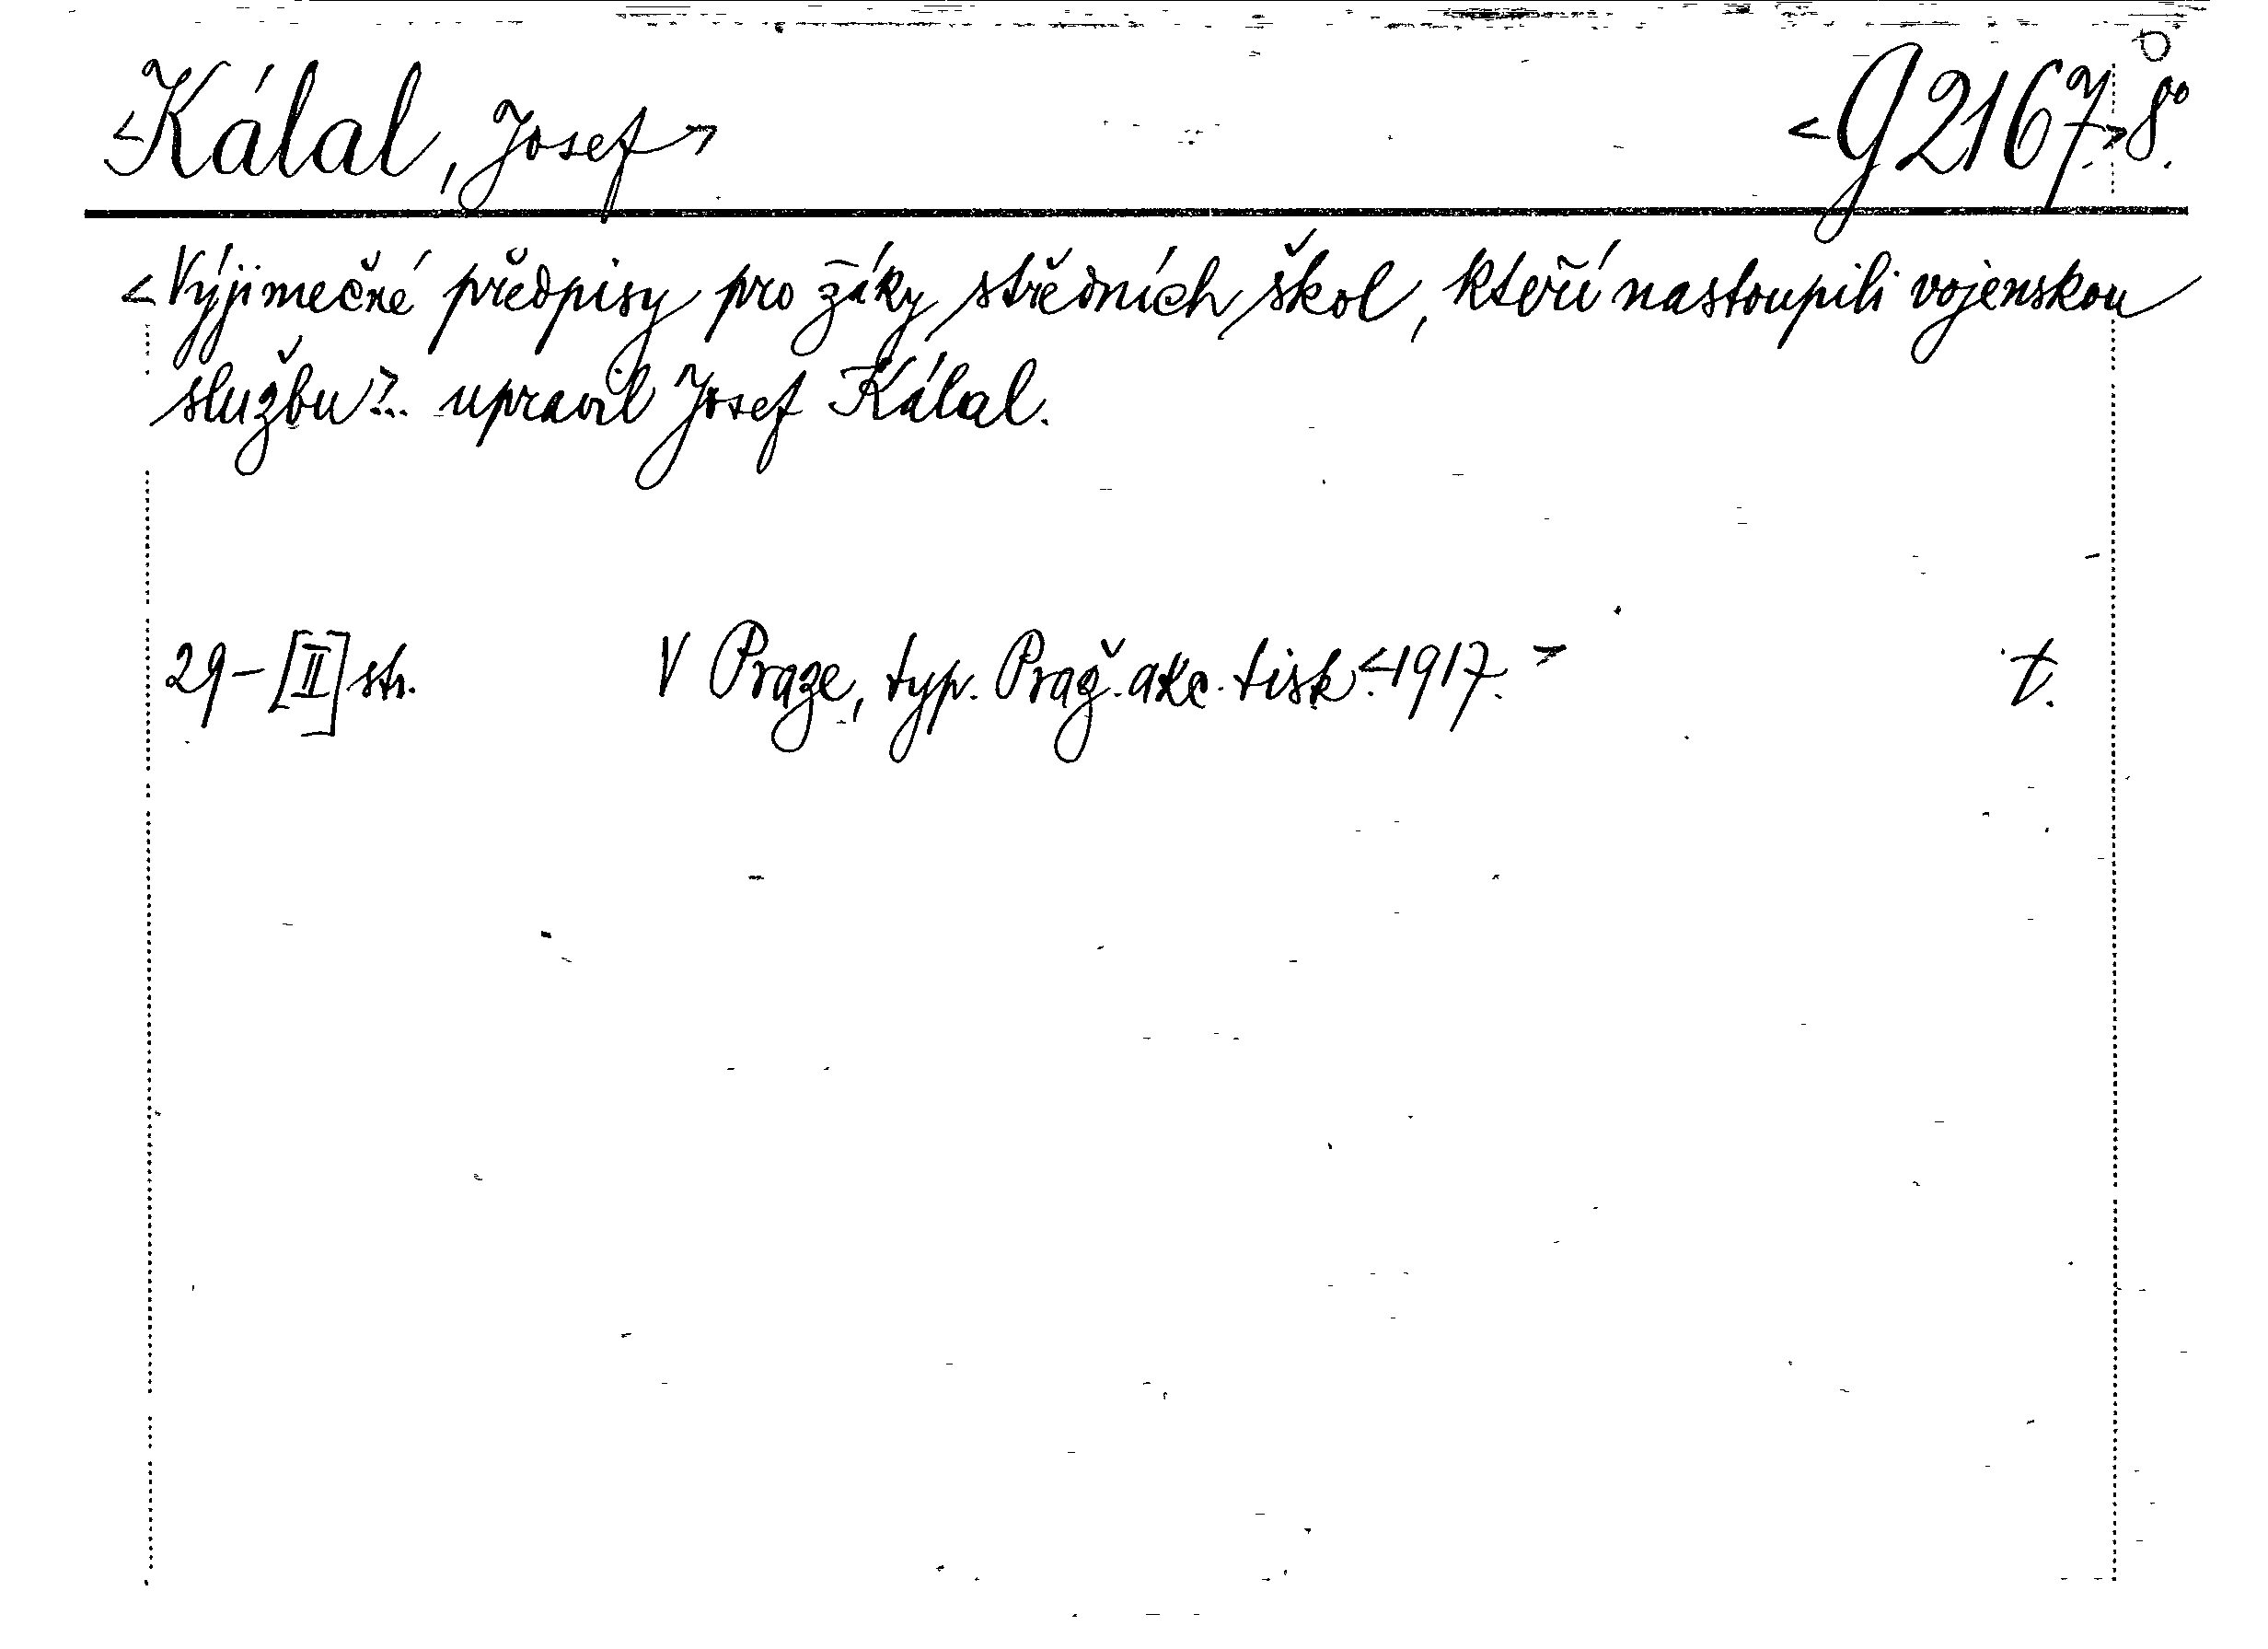 <Kálal, Josef> <G 2167.> 8°.
<Výjimečné předpisy pro žáky středních škol, kteří nastoupili vojenskou
službu>... upravil Josef Kálal.
29-[II] str. V Praze, typ. Praž. akc. tisk. <1917.> t.